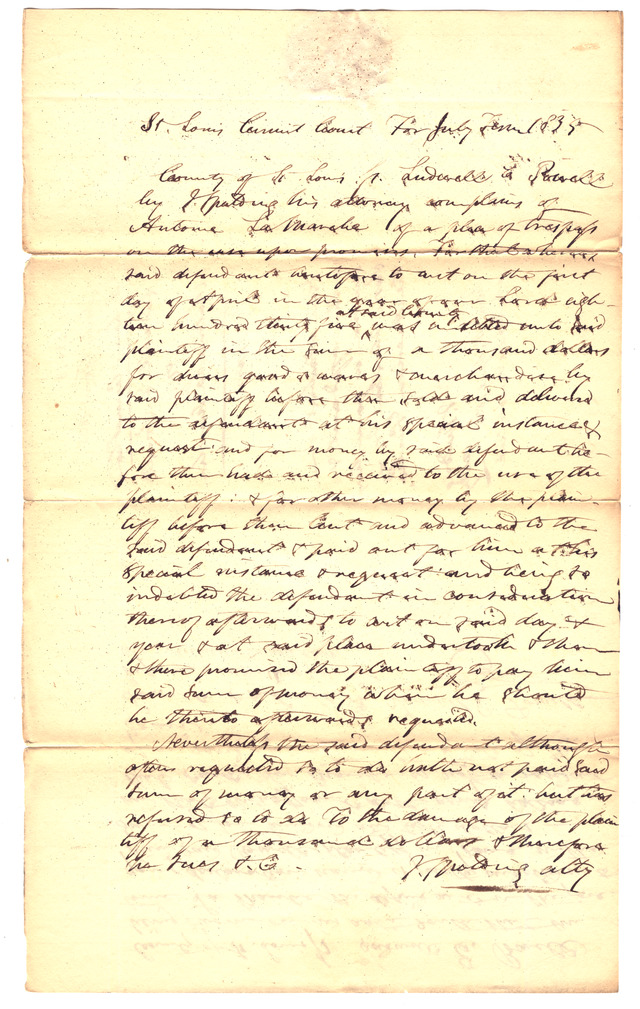 St. Louis Circuit Court For July Term 1835
County of St Louis ss. Ludwell G Powell
by J Spalding his attorney complains of
Antoine La Marche of a plea of trespass
on the case upon promises. For that whereas
said defendant heretofore to wit on the first
day of April in the year of our Lord eigh-
at said County
teen hundred thirty five was indebted unto said
plaintiff in the sum of a thousand dollars
for divers goods wares & merchandise by
said plaintiff before then sold and delivered
to the defendant at his special instance &
request and for money by said defendant be-
fore then had and received to the use of the
plaintiff: & for other money by the plain-
tiff before then lent and advanced to the
said defendant & paid out for him at his
special instance & request and being so
indebted the defendant in consideration
thereof afterwards to wit on said day &
year & at said place undertook & then
& there promised the plaintiff to pay him
said sum of money when he should
be thereto afterwards requested.
Nevertheless the said defendant although
often requested so to do hath not paid said
sum of money or any part of it but has
refused so to do To the damage of the plain
tiff of a thousand dollars & therefore
he sues &.C. J Spalding atty